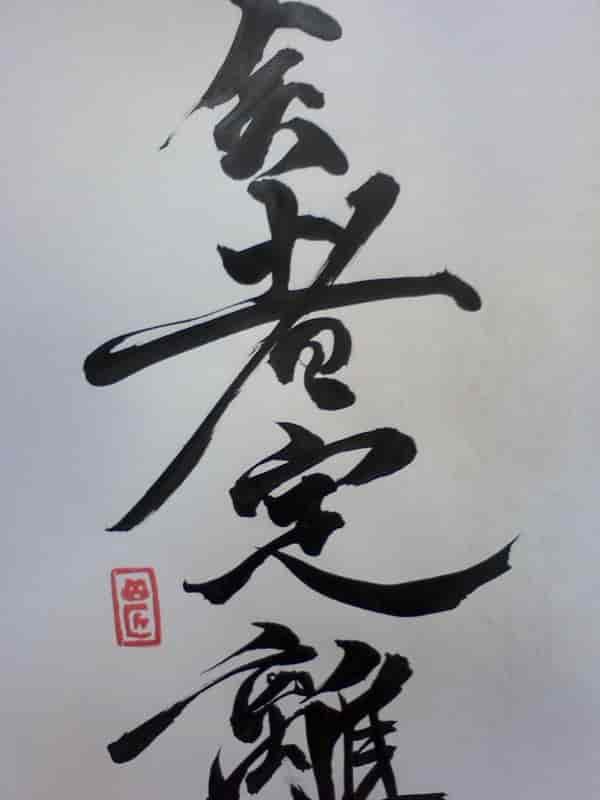 会者定離